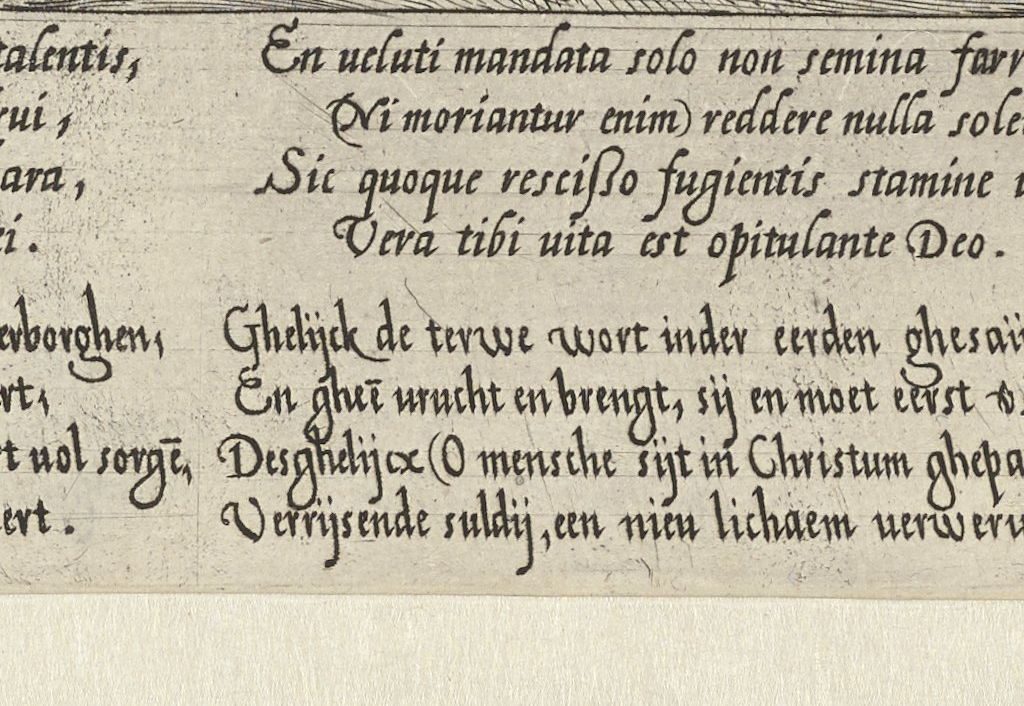 talentis,
En ueluti mandata solo non semina farr
Ni moriantur enim) reddere nulla sole
ara,
Sic quoque rescißo fugientis stamine
Vera tibi uita est opitulante Deo.
erborghen,
Ghelijck de terwe wort inder eerden ghesaii
En gheē urucht en brengt, sij en moet eerst
t uol sorgē,
Desghelijcx (O mensche sijt in Christum ghepa
ert.
Verrijsende suldij, een nieu lichaem uerweru